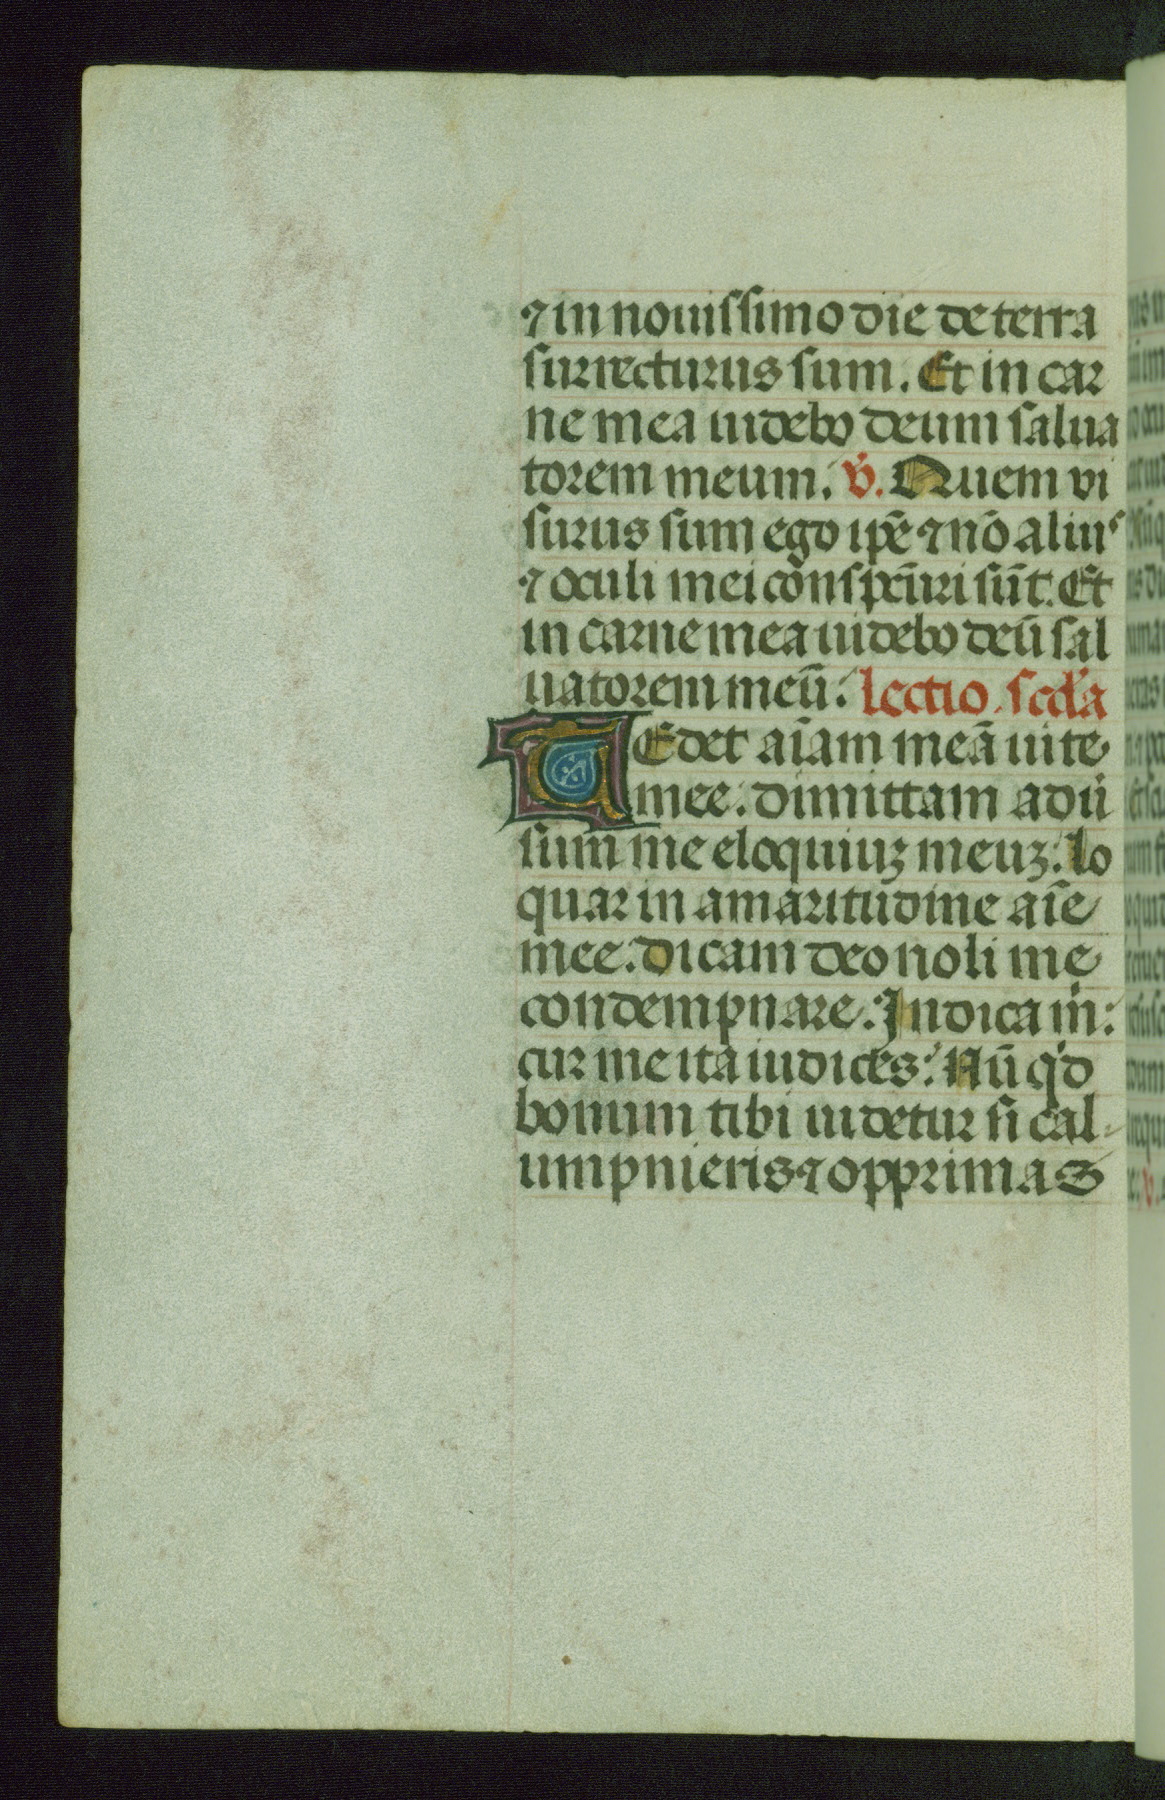 ⁊ in nouissimo die de terra
surrecturus sum. Et in car
ne mea uidebo deum salua
torem meum. v̄. Quem vi
surus sum ego ip̄e ⁊ nō alius
⁊ oculi mei cōnspc̄turi sūt. Et
in carne mea uidebo deū sal
uatorem meū. lectio. scd̄a
TEdet aīam meā uite
mee. dimittam adū
sum me eloquiuꝫ meuꝫ. lo
quar in amaritudine aīe
mee. dicam deo noli me
condempnare. Indica m̄:
cur me ita iudices. Nū qd̓
bonum tibi uidetur si cal-
umpnieris ⁊ opprimas